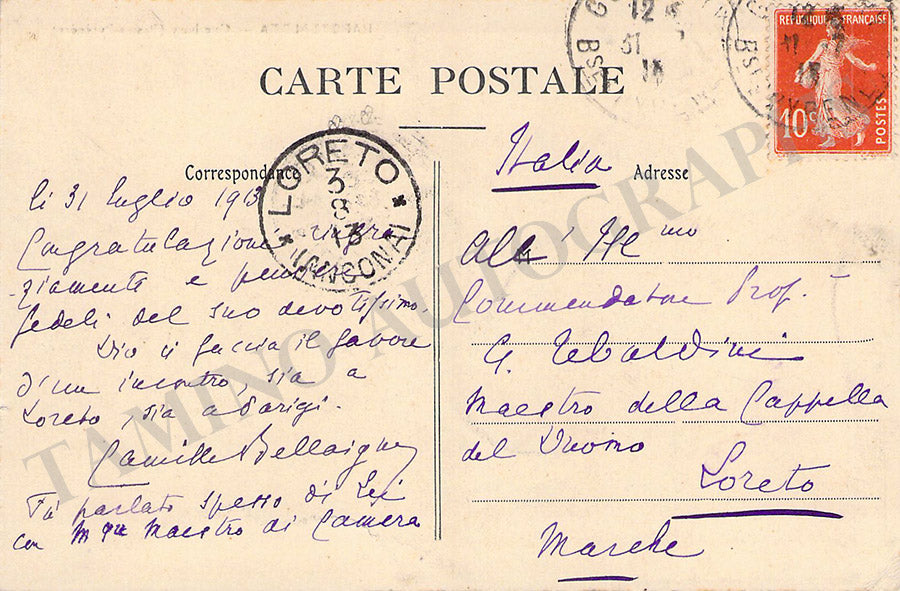 CARTE POSTALE
Correspondance
li 31 luglio 1913
Congratulazione ringra
ziamenti e pensieri
fedeli del suo devotissimo.
Dio ci faccia il favore
d'un incontro, sia a
Loreto, sia a Parigi.
Camille Bellaigue
Fù parlato spesso di Lei
con Maestro di Camera
LORETO
3
8
13
(ANCONA)
Adresse
Italia
All' Ill mo
Commendatore Prof.
G. Tebaldini
Maestro della Cappella
del Duomo
Loreto
Marche
12
31
13
RÉPUBLIQUE FRANÇAISE
10c
POSTES
TAMINO AUTOGRAPHS